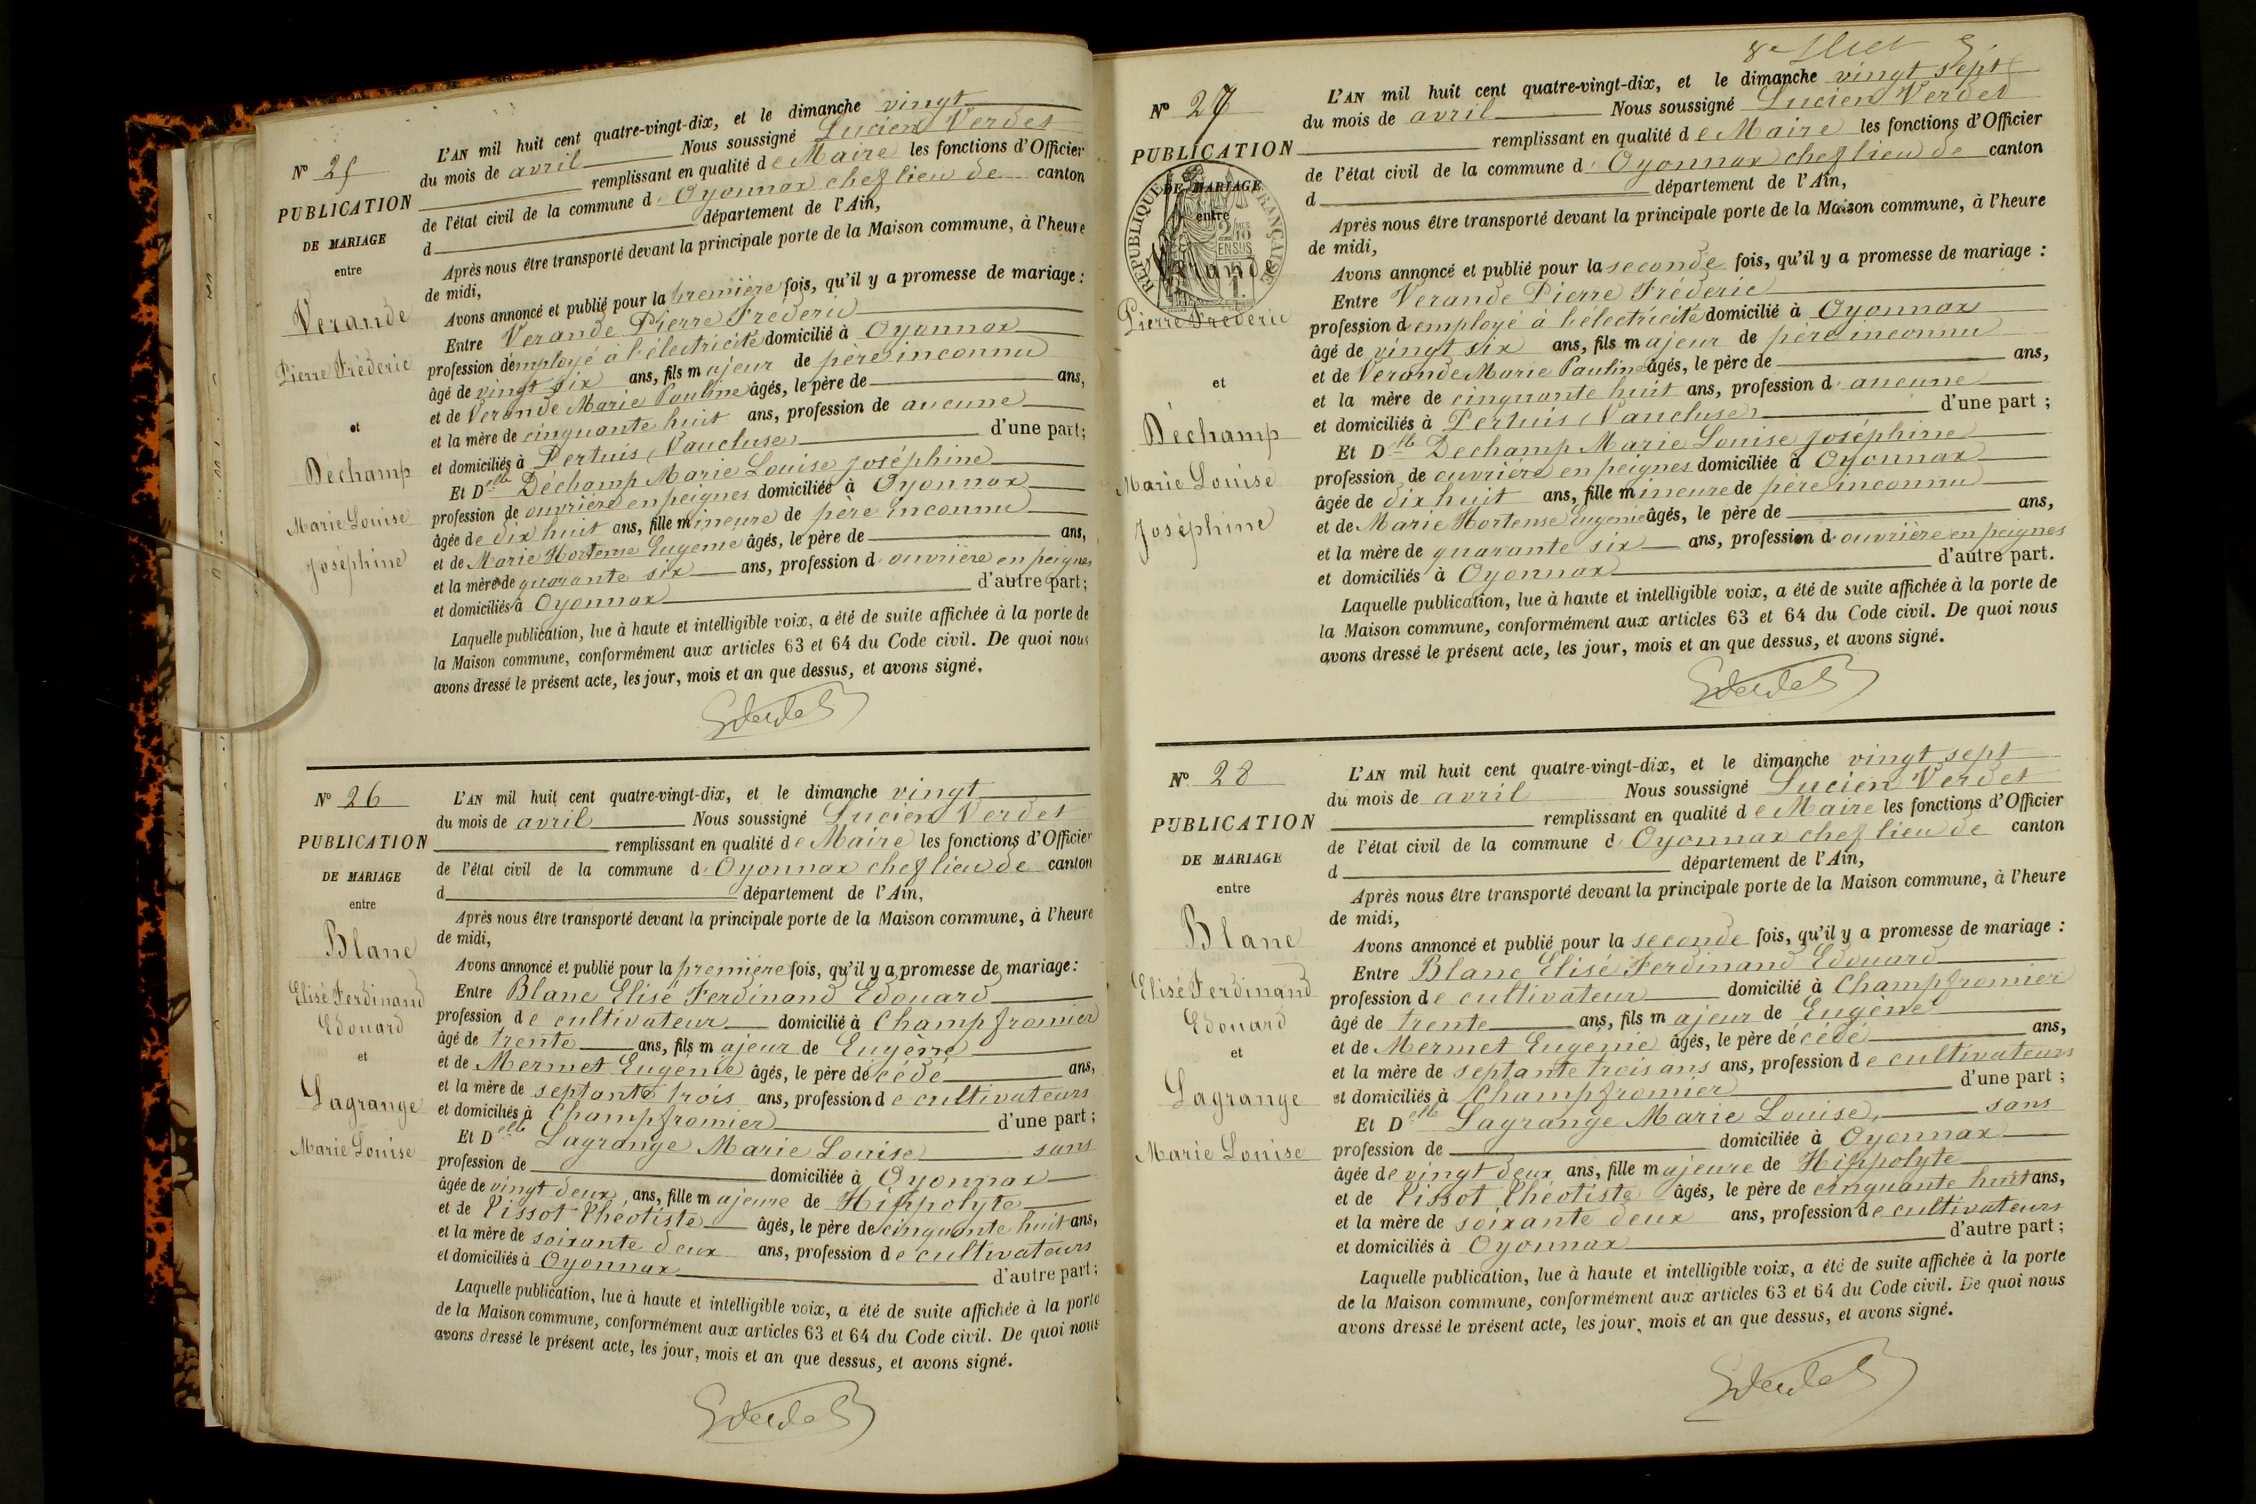 Nº 25
PUBLICATION
DE MARIAGE
entre
Verande
Pierre Fréderic
et
Déchamp
Marie Louise
Joséphine
L'AN mil huit cent quatre-vingt-dix, et le dimanche vingt
du mois de avril Nous soussigné Lucien Verdet
remplissant en qualité de Maire les fonctions d'Officier
de l'état civil de la commune d' Oyonnax chef lieu de canton
d département de l'Ain,
Après nous être transporté devant la principale porte de la Maison commune, à l'heure
de midi,
Avons annoncé et publié pour la première fois, qu'il y a promesse de mariage :
Entre Verande Pierre Fréderic
profession d'employé à l'électricité domicilié à Oyonnax
âgé de vingt six ans, fils majeur de père inconnu
et de Verande Marie Pauline âgés, le père de ans,
et la mère de cinquante huit ans, profession de aucune
et domiciliés à Pertuis (Vaucluse) d'une part;
Et Delle Déchamp Marie Louise Joséphine
profession de ouvrière en peignes domiciliée à Oyonnax
âgée de dix huit ans, fille mineure de père inconnu
et de Marie Hortense Eugenie âgés, le père de ans,
et la mère de quarante six ans, profession d' ouvrière en peignes
et domiciliés à Oyonnax d'autre part;
Laquelle publication, lue à haute et intelligible voix, a été de suite affichée à la porte de
la Maison commune, conformément aux articles 63 et 64 du Code civil. De quoi nous
avons dressé le présent acte, les jour, mois et an que dessus, et avons signé.
Nº 26
PUBLICATION
DE MARIAGE
entre
Blanc
Elisé Ferdinand
Edouard
et
Lagrange
Marie Louise
L'AN mil huit cent quatre-vingt-dix, et le dimanche vingt
du mois de avril Nous soussigné Lucien Verdet
remplissant en qualité de Maire les fonctions d'Officier
de l'état civil de la commune d' Oyonnax chef lieu de canton
d département de l'Ain,
Après nous être transporté devant la principale porte de la Maison commune, à l'heure
de midi,
Avons annoncé et publié pour la première fois, qu'il y a promesse de mariage :
Entre Blanc Elisé Ferdinand Edouard
profession de cultivateur domicilié à Champfromier
âgé de trente ans, fils majeur de Eugène
et de Mermet Eugenie âgés, le père décédé ans,
et la mère de septante trois ans, profession de cultivateurs
et domiciliés à Champfromier d'une part;
Et Delle Lagrange Marie Louise sans
profession de domiciliée à Oyonnax
âgée de vingt deux ans, fille majeure de Hippolyte
et de Pissot Théotiste âgés, le père de cinquante huit ans,
et la mère de soixante deux ans, profession de cultivateurs
et domiciliés à Oyonnax d'autre part;
Laquelle publication, lue à haute et intelligible voix, a été de suite affichée à la porte
de la Maison commune, conformément aux articles 63 et 64 du Code civil. De quoi nous
avons dressé le présent acte, les jour, mois et an que dessus, et avons signé.
Nº 27
PUBLICATION
DE MARIAGE
entre
RÉPUBLIQUE FRANÇAISE
Verande
Pierre Fréderic
et
Déchamp
Marie Louise
Joséphine
L'AN mil huit cent quatre-vingt-dix, et le dimanche vingt sept
du mois de avril Nous soussigné Lucien Verdet
remplissant en qualité de Maire les fonctions d'Officier
de l'état civil de la commune d' Oyonnax chef lieu de canton
d département de l'Ain,
Après nous être transporté devant la principale porte de la Maison commune, à l'heure
de midi,
Avons annoncé et publié pour la seconde fois, qu'il y a promesse de mariage :
Entre Verande Pierre Fréderic
profession d'employé à l'électricité domicilié à Oyonnax
âgé de vingt six ans, fils majeur de père inconnu
et de Verande Marie Pauline âgés, le père de ans,
et la mère de cinquante huit ans, profession d' aucune
et domiciliés à Pertuis (Vaucluse) d'une part ;
Et Delle Dechamp Marie Louise Joséphine
profession de ouvrière en peignes domiciliée à Oyonnax
âgée de dix huit ans, fille mineure de père inconnu
et de Marie Hortense Eugenie âgés, le père de ans,
et la mère de quarante six ans, profession d' ouvrière en peignes
et domiciliés à Oyonnax d'autre part.
Laquelle publication, lue à haute et intelligible voix, a été de suite affichée à la porte de
la Maison commune, conformément aux articles 63 et 64 du Code civil. De quoi nous
avons dressé le présent acte, les jour, mois et an que dessus, et avons signé.
Nº 28
PUBLICATION
DE MARIAGE
entre
Blanc
Elisé Ferdinand
Edouard
et
Lagrange
Marie Louise
L'AN mil huit cent quatre-vingt-dix, et le dimanche vingt sept
du mois de avril Nous soussigné Lucien Verdet
remplissant en qualité de Maire les fonctions d'Officier
de l'état civil de la commune d' Oyonnax chef lieu de canton
d département de l'Ain,
Après nous être transporté devant la principale porte de la Maison commune, à l'heure
de midi,
Avons annoncé et publié pour la seconde fois, qu'il y a promesse de mariage :
Entre Blanc Elisé Ferdinand Edouard
profession de cultivateur domicilié à Champfromier
âgé de trente ans, fils majeur de Eugène
et de Mermet Eugenie âgés, le père décédé ans,
et la mère de septante trois ans ans, profession de cultivateurs
et domiciliés à Champfromier d'une part ;
Et Delle Lagrange Marie Louise, sans
profession de domiciliée à Oyonnax
âgée de vingt deux ans, fille majeure de Hippolyte
et de Pissot Théotiste âgés, le père de cinquante huit ans,
et la mère de soixante deux ans, profession de cultivateurs
et domiciliés à Oyonnax d'autre part ;
Laquelle publication, lue à haute et intelligible voix, a été de suite affichée à la porte
de la Maison commune, conformément aux articles 63 et 64 du Code civil. De quoi nous
avons dressé le présent acte, les jour, mois et an que dessus, et avons signé.